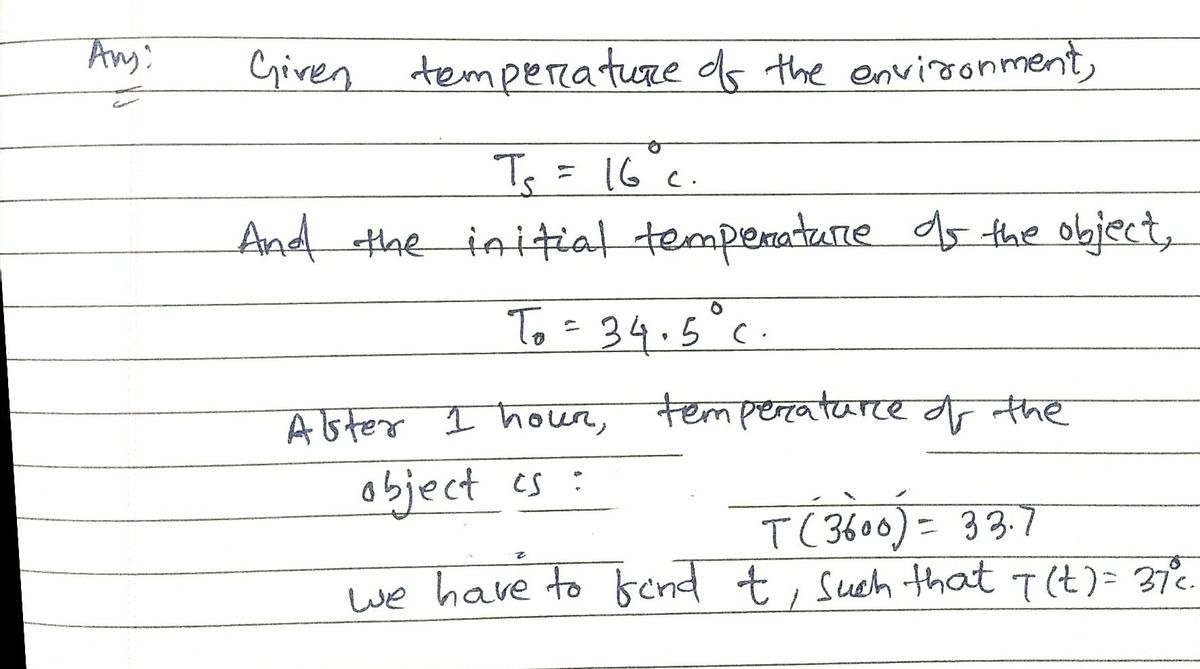 Ans:
Given temperature of the environment,
Ts = 16°c.
And the initial temperature of the object,
T₀ = 34.5°c.
After 1 hour, temperature of the
object is :
T(3600) = 33.7
we have to find t, such that T(t) = 37°c.